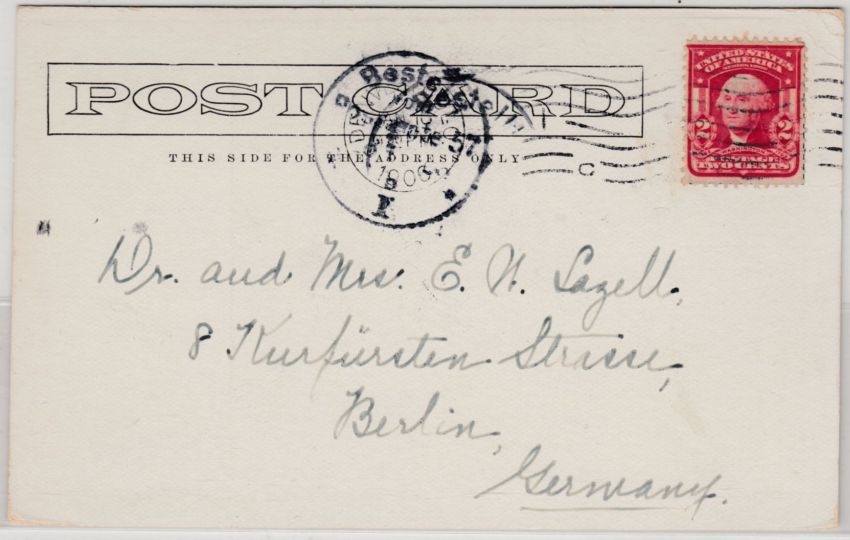 POST CARD
THIS SIDE FOR THE ADDRESS ONLY
UNITED STATES
OF AMERICA
2 2
WASHINGTON
TWO CENTS
1906
C
Dr. and Mrs. E. N. Lazell,
8 Kurfürsten Strasse,
Berlin,
Germany.